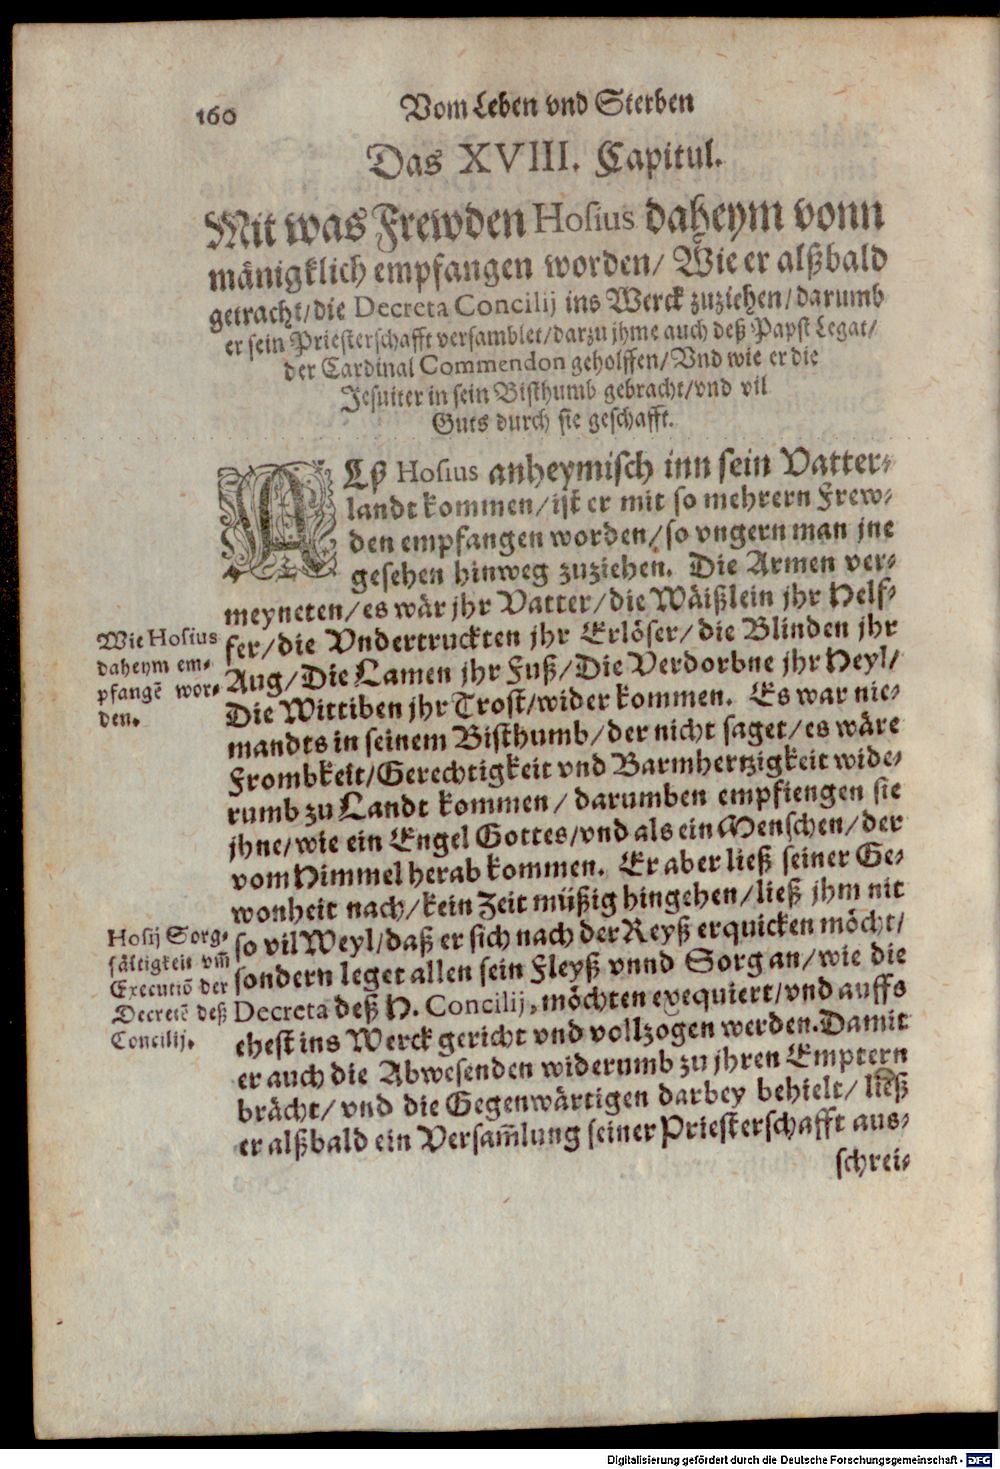 160
Vom Leben vnd Sterben
Das XVIII. Capitul.
Mit was Frewden Hosius daheym vonn
mänigklich empfangen worden/ Wie er alßbald
getracht/ die Decreta Concilij ins Werck zuziehen/ darumb
er sein Priesterschafft versamblet/ darzu jhme auch deß Papst Legat/
der Cardinal Commendon geholffen/ Vnd wie er die
Jesuiter in sein Bisthumb gebracht/ vnd vil
Guts durch sie geschafft.
ALß Hosius anheymisch inn sein Vatter-
landt kommen/ ist er mit so mehrern Frew-
den empfangen worden/ so vngern man jne
gesehen hinweg zuziehen. Die Armen ver-
meyneten/ es wär jhr Vatter/ die Wäißlein jhr Helf-
fer/ die Vndertruckten jhr Erlöser/ die Blinden jhr
Aug/ Die Lamen jhr Fuß/ Die Verdorbne jhr Heyl/
Die Wittiben jhr Trost/ wider kommen. Es war nie-
mandts in seinem Bisthumb/ der nicht saget/ es wäre
Frombkeit/ Gerechtigkeit vnd Barmhertzigkeit wide-
rumb zu Landt kommen/ darumben empfiengen sie
jhne/ wie ein Engel Gottes/ vnd als ein Menschen/ der
vom Himmel herab kommen. Er aber ließ seiner Ge-
wonheit nach/ kein Zeit müßig hingehen/ ließ jhm nit
so vil Weyl/ daß er sich nach der Reyß erquicken möcht/
sondern leget allen sein Fleyß vnnd Sorg an/ wie die
Decreta deß H. Concilij, möchten exequiert/ vnd auffs
ehest ins Werck gericht vnd vollzogen werden. Damit
er auch die Abwesenden widerumb zu jhren Emptern
brächt/ vnd die Gegenwärtigen darbey behielt/ ließ
er alßbald ein Versam̃lung seiner Priesterschafft aus-
schrei-
Wie Hosius
daheym em-
pfangẽ wor-
den.
Hosij Sorg-
fältigkeit vm̃
Executiõ der
Decretẽ deß
Concilij.
Digitalisierung gefördert durch die Deutsche Forschungsgemeinschaft - DFG